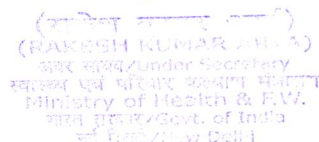 (RAKESH KUMAR
अवर सचिव/Under Secretary
स्वास्थ्य एवं परिवार कल्याण मंत्रालय
Ministry of Health & F.W.
भारत सरकार/Govt. of India
नई दिल्ली/New Delhi